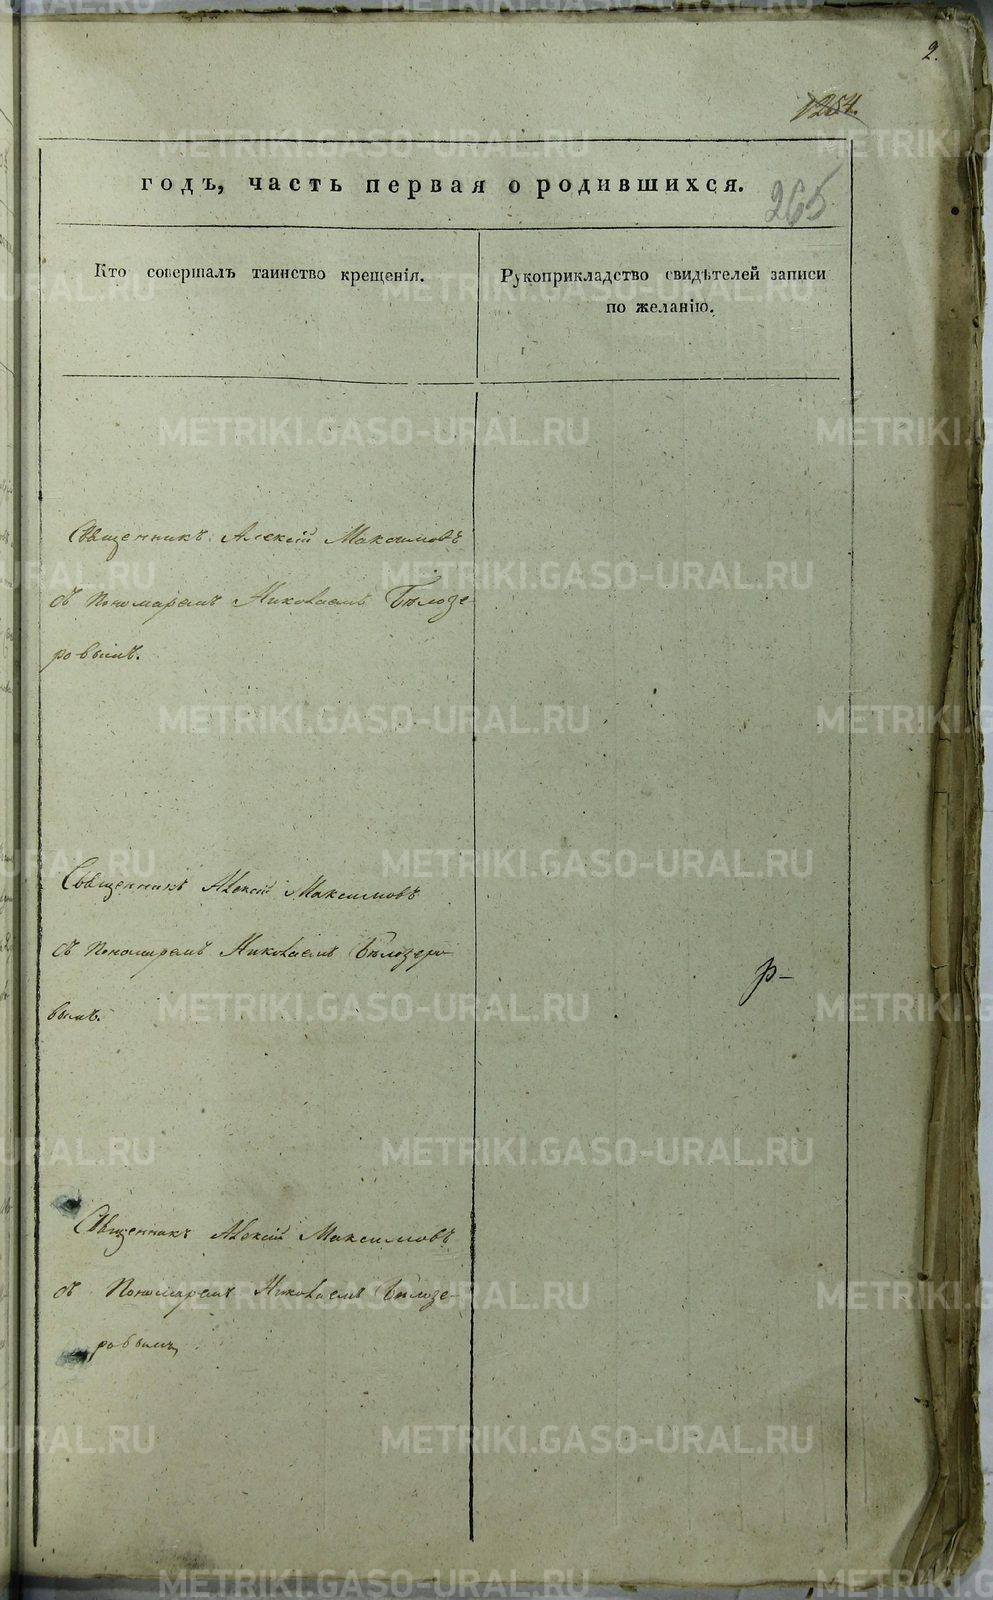 2.
1254.
годъ, часть первая о родившихся.
265
Кто совершалъ таинство крещенія.
Рукоприкладство свидѣтелей записи
по желанію.
Священникъ Алексій Максимовъ
съ Пономаремъ Николаемъ Бѣлозе-
ровымъ.
Священникъ Алексій Максимовъ
съ Пономаремъ Николаемъ Бѣлозеро-
вымъ.
р-
Священникъ Алексій Максимовъ
съ Пономаремъ Николаемъ Бѣлозе-
ровымъ,
METRIKI.GASO-URAL.RU